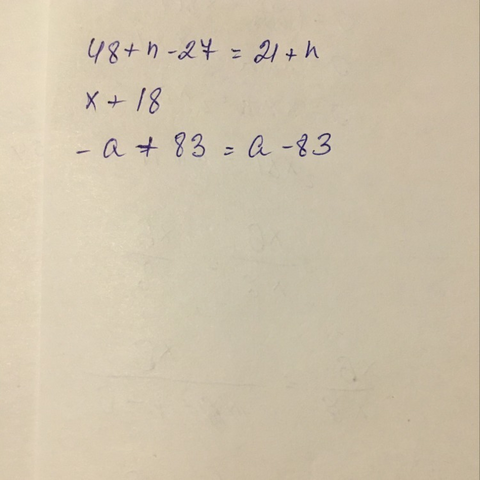 48+n-27 = 21+n
x+18
-a+83 = a-83